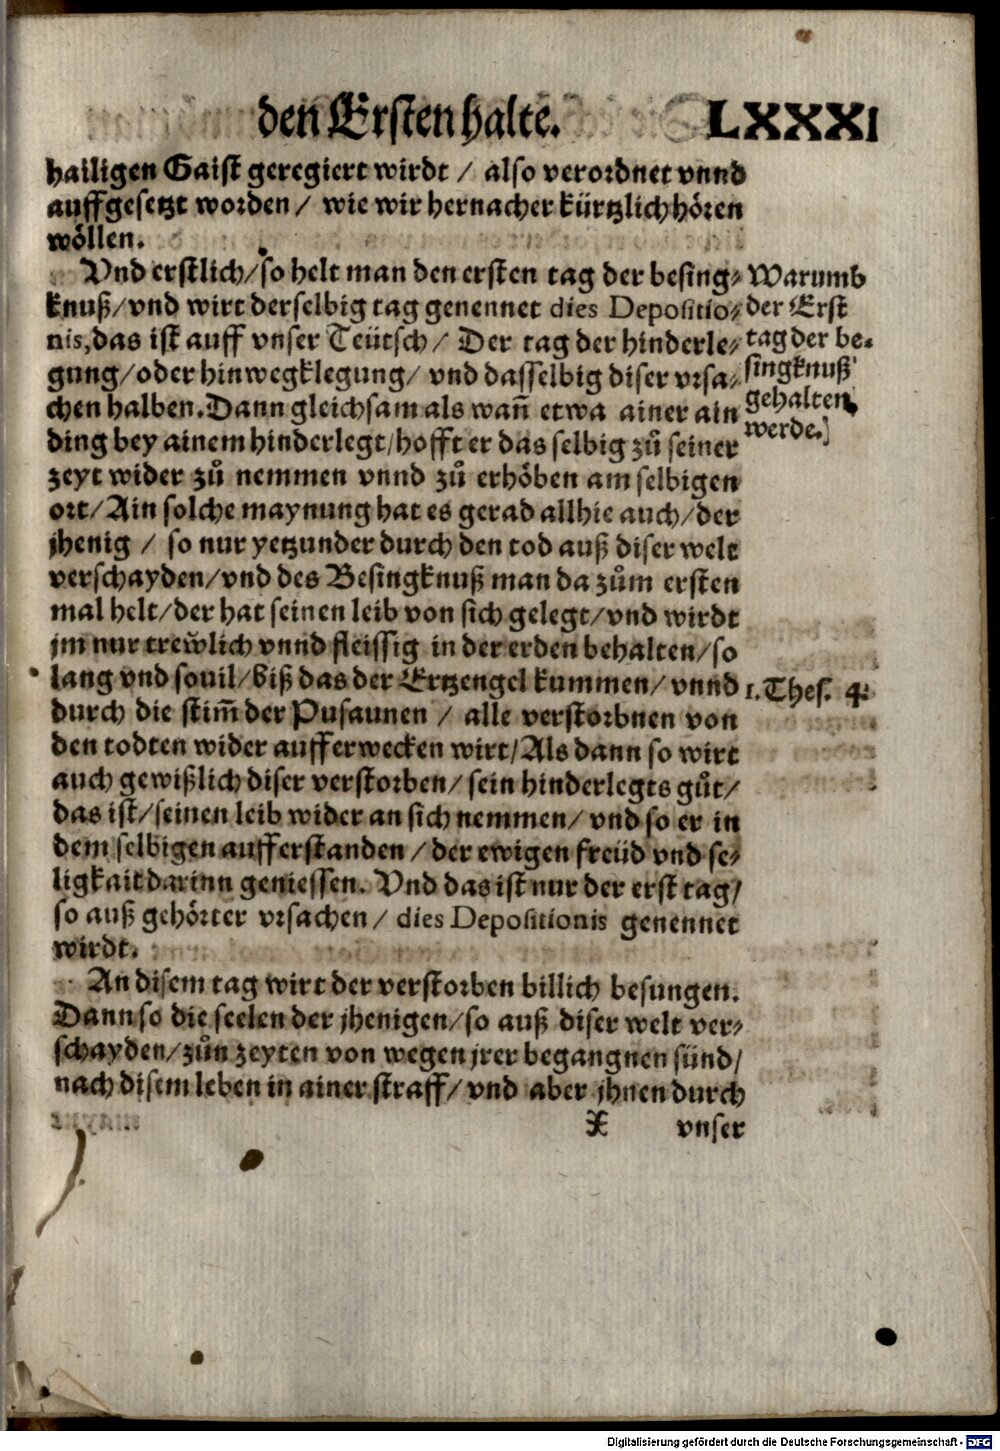 den Ersten halte. LXXXI
hailigen Gaist geregiert wirdt / also verordnet vnnd
auffgesetzt worden / wie wir hernacher kürtzlich hören
wöllen.
Vnd erstlich / so helt man den ersten tag der besing⸗
knuß / vnd wirt derselbig tag genennet dies Depositio⸗
nis, das ist auff vnser Teütsch / Der tag der hinderle⸗
gung / oder hinwegklegung / vnd dasselbig diser vrsa⸗
chen halben. Dann gleichsam als wañ etwa ainer ain
ding bey ainem hinderlegt / hofft er das selbig zů seiner
zeyt wider zů nemmen vnnd zů erhöben am selbigen
ort / Ain solche maynung hat es gerad allhie auch / der
jhenig / so nur yetzunder durch den tod auß diser welt
verschayden / vnd des Besingknuß man da zům ersten
mal helt / der hat seinen leib von sich gelegt / vnd wirdt
jm nur trewlich vnnd fleissig in der erden behalten / so
lang vnd souil / biß das der Ertzengel kummen / vnnd
durch die stim̃ der Pusaunen / alle verstorbnen von
den todten wider aufferwecken wirt / Als dann so wirt
auch gewißlich diser verstorben / sein hinderlegts gůt /
das ist / seinen leib wider an sich nemmen / vnd so er in
dem selbigen aufferstanden / der ewigen freüd vnd se⸗
ligkait darinn geniessen. Vnd das ist nur der erst tag /
so auß gehörter vrsachen / dies Depositionis genennet
wirdt.
An disem tag wirt der verstorben billich besungen.
Dann so die seelen der jhenigen / so auß diser welt ver⸗
schayden / zůn zeyten von wegen jrer begangnen sünd /
nach disem leben in ainer straff / vnd aber jhnen durch
X vnser
Warumb
der Erst
tag der be⸗
singknuß
gehalten
werde.
1. Thes. 4.
Digitalisierung gefördert durch die Deutsche Forschungsgemeinschaft - DFG